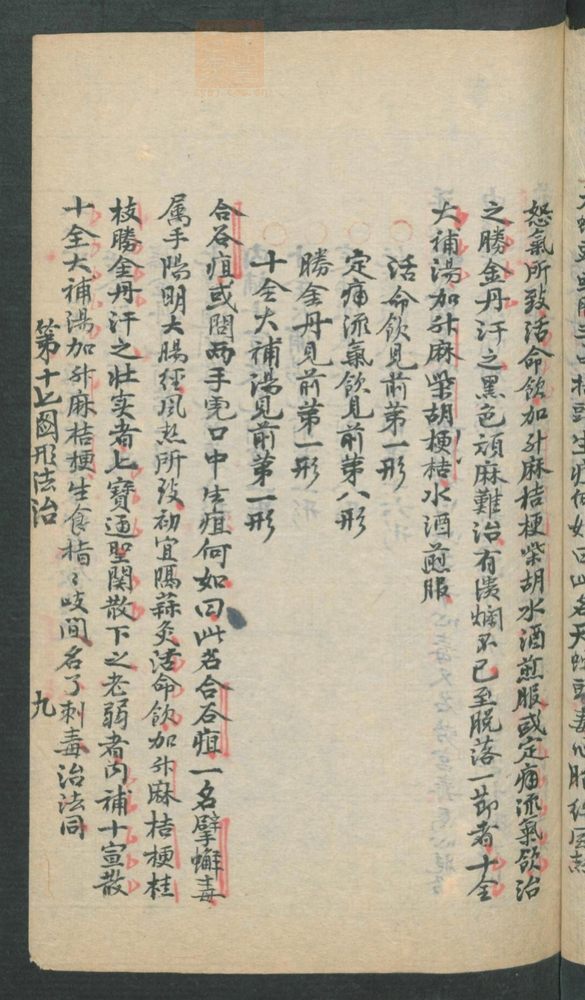 怒氣所致活命飲加升麻桔梗柴胡水酒煎服或定痛流氣飲治
之勝金丹汗之黑色頑麻難治有潰爛不已至脱落一節者十全
大補湯加升麻柴胡梗桔水酒煎服
活命飲見前第一形
定痛流氣飲見前第八形
勝金丹見前第一形
十全大補湯見前第一形
合谷疽或問两手虎口中生疽何如曰此名合谷疽一名擘蠏毒
属手陽明大腸經風热所致初宜隔蒜灸活命飲加升麻桔梗桂
枝勝金丹汗之壮实者七寶通聖関散下之老弱者内補十宣散
十全大補湯加升麻桔梗生食指〻岐間名了刺毒治法同
第十七圖形法治
九